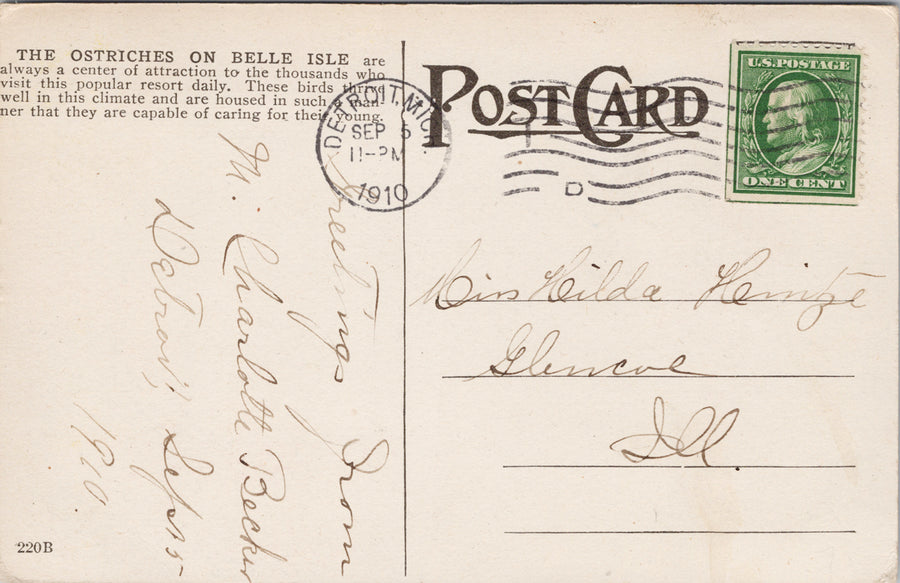 THE OSTRICHES ON BELLE ISLE are
always a center of attraction to the thousands who
visit this popular resort daily. These birds thrive
well in this climate and are housed in such a man-
ner that they are capable of caring for their young.
POST CARD
DETROIT, MICH.
SEP 5
11-PM
1910
D
U.S. POSTAGE
ONE CENT
Greetings from
M. Charlotte Becker
Detroit, Sept 5
1910
Miss Hilda Heintze
Glencoe
Ill
220B